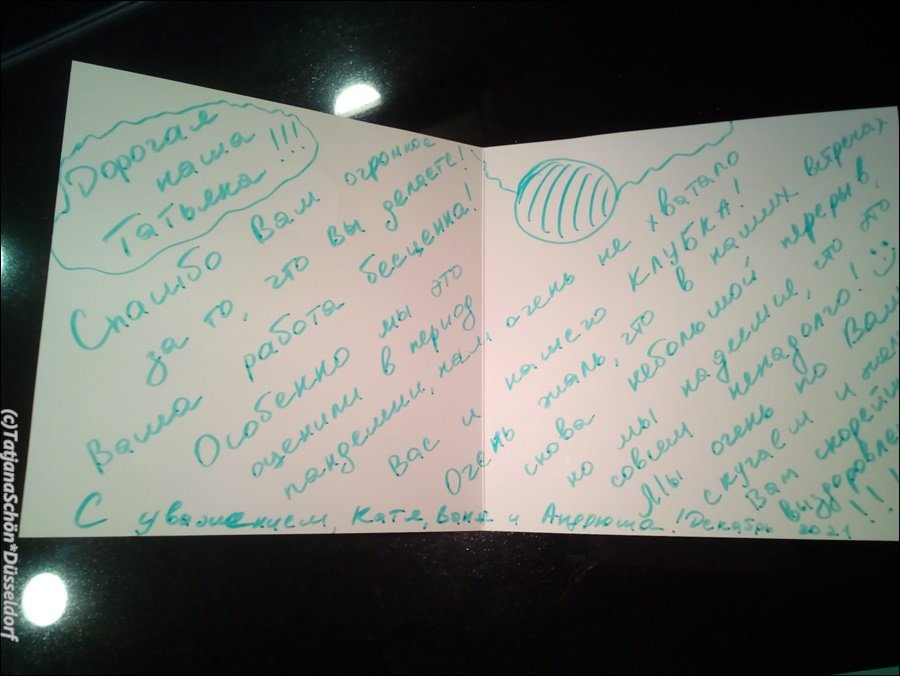 Дорогая
наша
Татьяна!!!
Спасибо Вам огромное
за то, что вы делаете!
Ваша работа бесценна!
Особенно мы это
оценили в период
пандемии, нам очень не хватало
Вас и нашего КЛУБКА!
Очень жаль, что в наших встречах
снова небольшой перерыв,
но мы надеемся, что это
совсем ненадолго!
Мы очень по Вам
скучаем и
Вам скорейш
выздоровле
!!!
С уважением, Катя, Ваня и Андрюша! Декабрь 2021
(c)TatjanaSchön*Düsseldorf